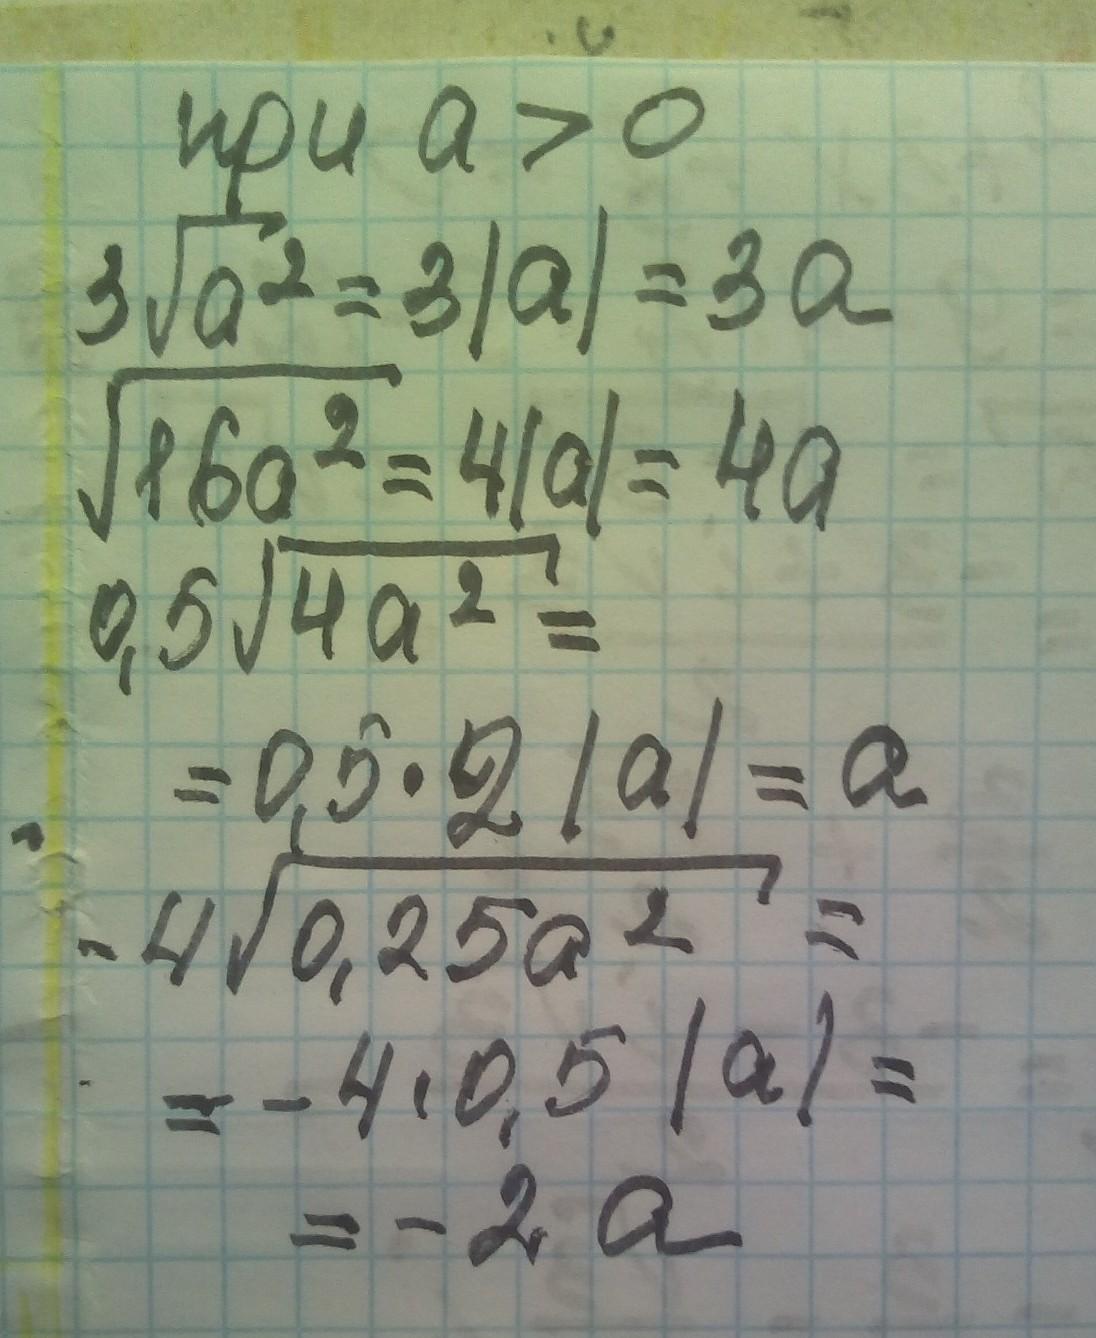 при a > 0
3√a² = 3|a| = 3a
√16a² = 4|a| = 4a
0,5√4a² =
= 0,5 · 2|a| = a
- 4√0,25a² =
= - 4 · 0,5 |a| =
= - 2 a